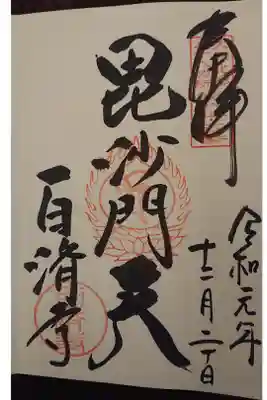 奉拝
令和元年
十二月二十日
毘沙門天
百済寺